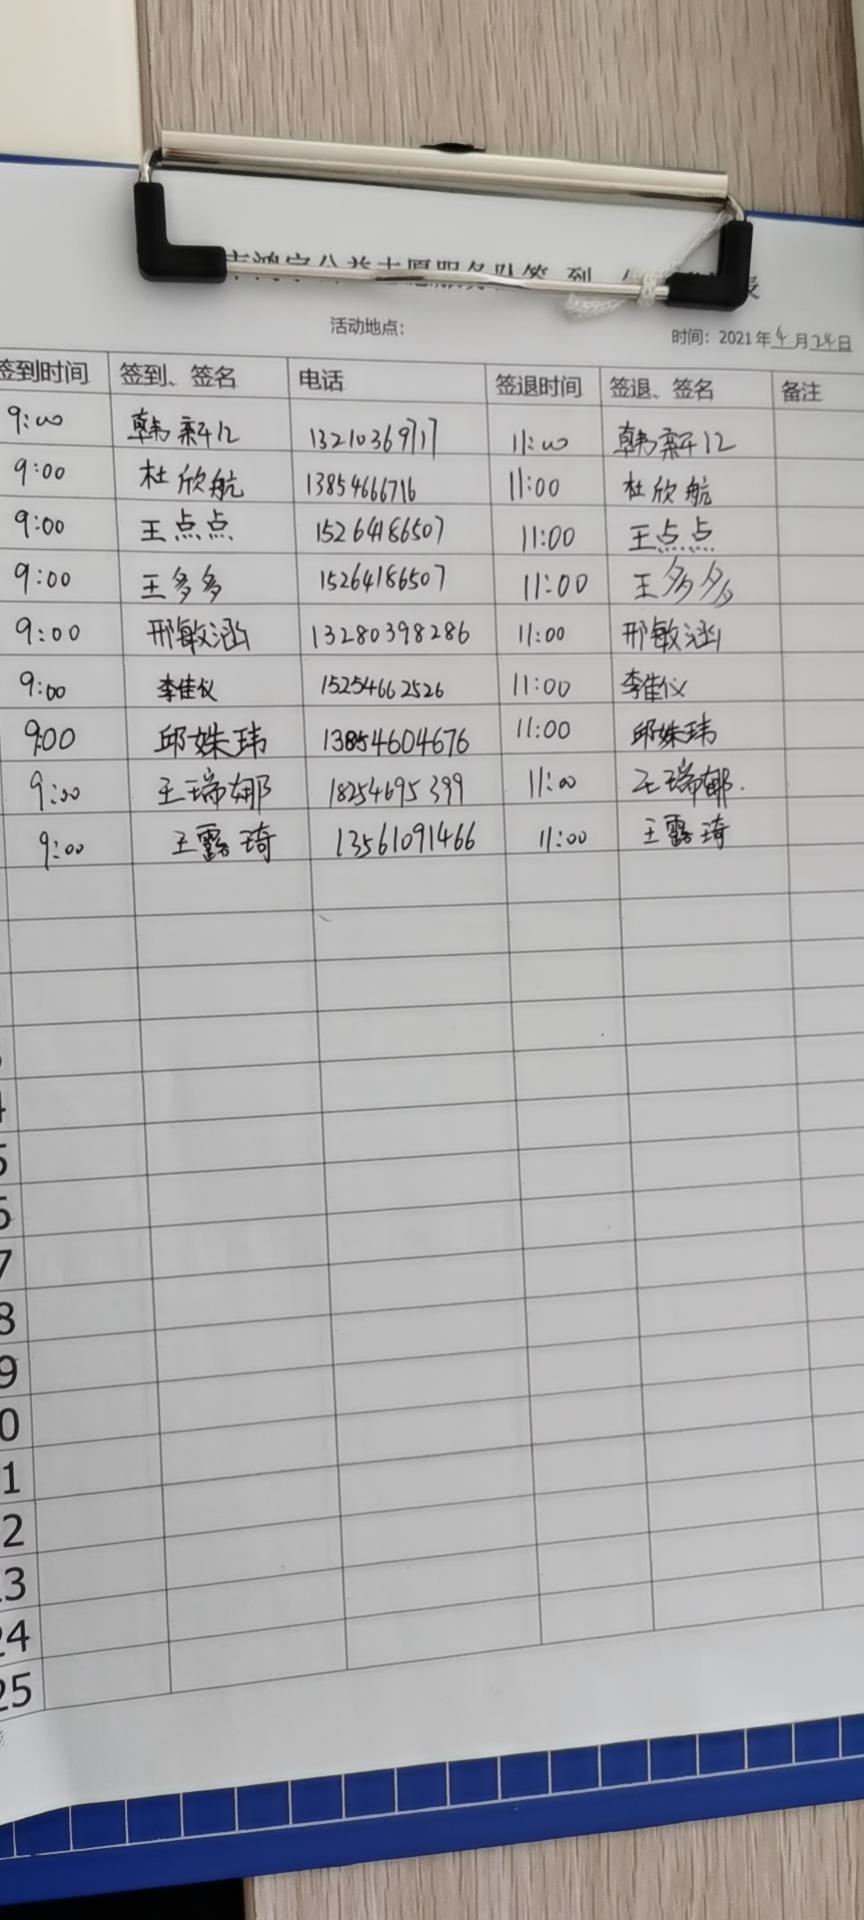 公益志愿服务队签 到
活动地点：
时间：2021年4月24日
签到时间 签到、签名 电话 签退时间 签退、签名 备注
9:00 韩 13210369717 11:00 韩
9:00 杜欣航 13854666716 11:00 杜欣航
9:00 王点点 15264186507 11:00 王点点
9:00 王多多 15264186507 11:00 王多多
9:00 邢敏涵 13280398286 11:00 邢敏涵
9:00 李佳仪 15254662526 11:00 李佳仪
9:00 邱姝玮 13854604676 11:00 邱姝玮
9:00 王瑞娜 18254695399 11:00 王瑞娜.
9:00 王露琦 13561091466 11:00 王露琦
4
5
6
7
8
9
0
1
2
3
24
25